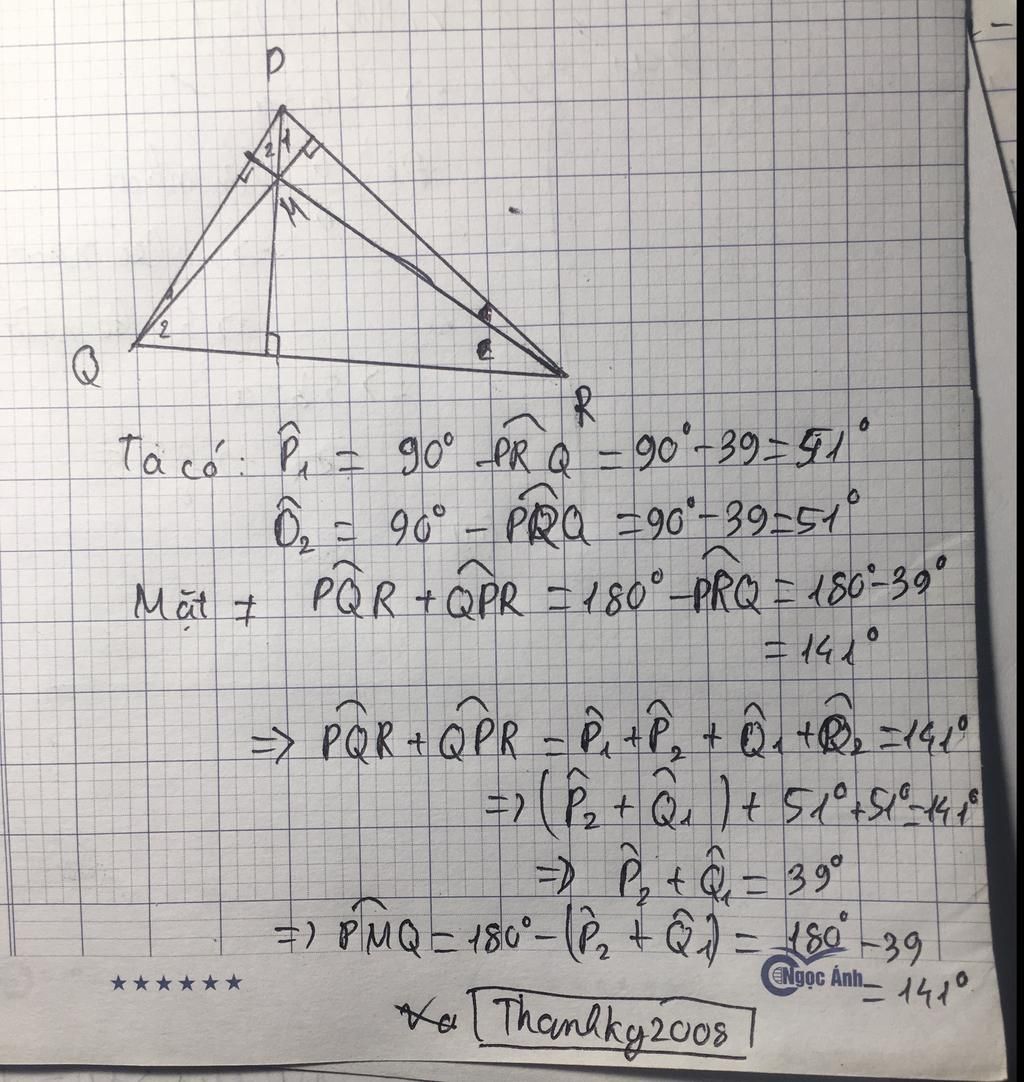 P
2 1
M
2
Q
R
Ta có: P̂₁ = 90° - PR̂Q = 90° - 39 = 51°
Q̂₂ = 90° - PR̂Q = 90° - 39 = 51°
Mặt ≠ PQ̂R + QP̂R = 180° - PR̂Q = 180° - 39°
= 141°
=> PQ̂R + QP̂R = P̂₁ + P̂₂ + Q̂₁ + Q̂₂ = 141°
=> (P̂₂ + Q̂₁) + 51° + 51° = 141°
=> P̂₂ + Q̂₁ = 39°
=> PM̂Q = 180° - (P̂₂ + Q̂₁) = 180° - 39
Ngọc Ánh
= 141°
Thanlky2008